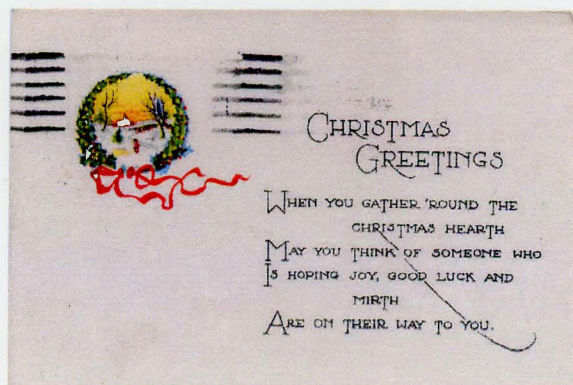 CHRISTMAS
GREETINGS
WHEN YOU GATHER 'ROUND THE
CHRISTMAS HEARTH
MAY YOU THINK OF SOMEONE WHO
IS HOPING JOY, GOOD LUCK AND
MIRTH
ARE ON THEIR WAY TO YOU.